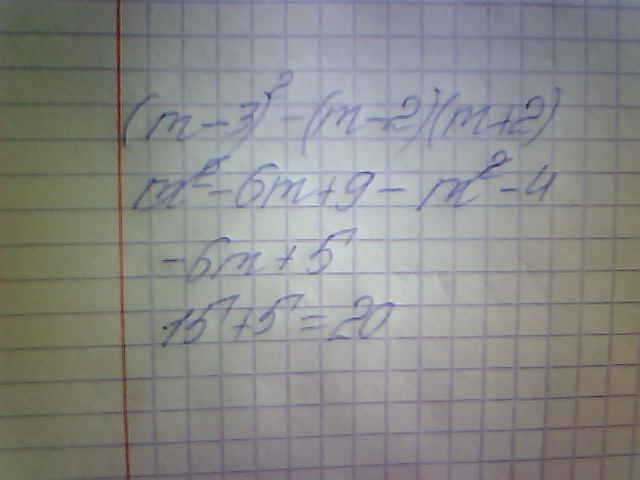 (m-3)² - (m-2)(m+2)
m² - 6m + 9 - m² - 4
-6m + 5
15 + 5 = 20